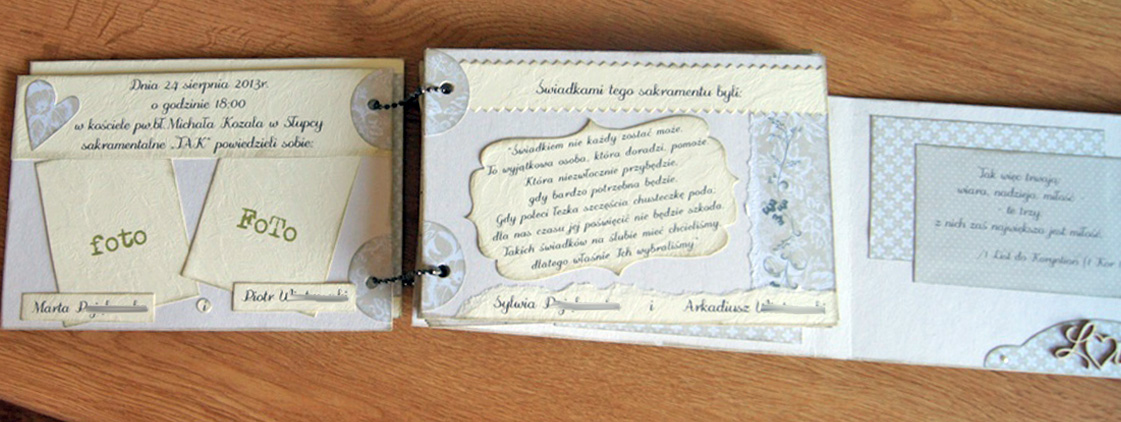 Dnia 24 sierpnia 2013r.
o godzinie 18:00
w kościele pw.bł. Michała Kozala w Słupcy
sakramentalne „TAK” powiedzieli sobie:
foto
FoTo
Marta
i
Piotr
Świadkami tego sakramentu byli:
"Świadkiem nie każdy zostać może.
To wyjątkowa osoba, która doradzi, pomoże.
Która niezwłocznie przybędzie,
gdy bardzo potrzebna będzie.
Gdy poleci łezka szczęścia chusteczkę poda;
dla nas czasu jej poświęcić nie będzie szkoda.
Takich świadków na ślubie mieć chcieliśmy,
dlatego właśnie Ich wybraliśmy"
Sylwia
i
Arkadiusz
Tak więc trwają:
wiara, nadzieja, miłość
te trzy:
z nich zaś największa jest miłość.
/1 List do Koryntian (1 Kor